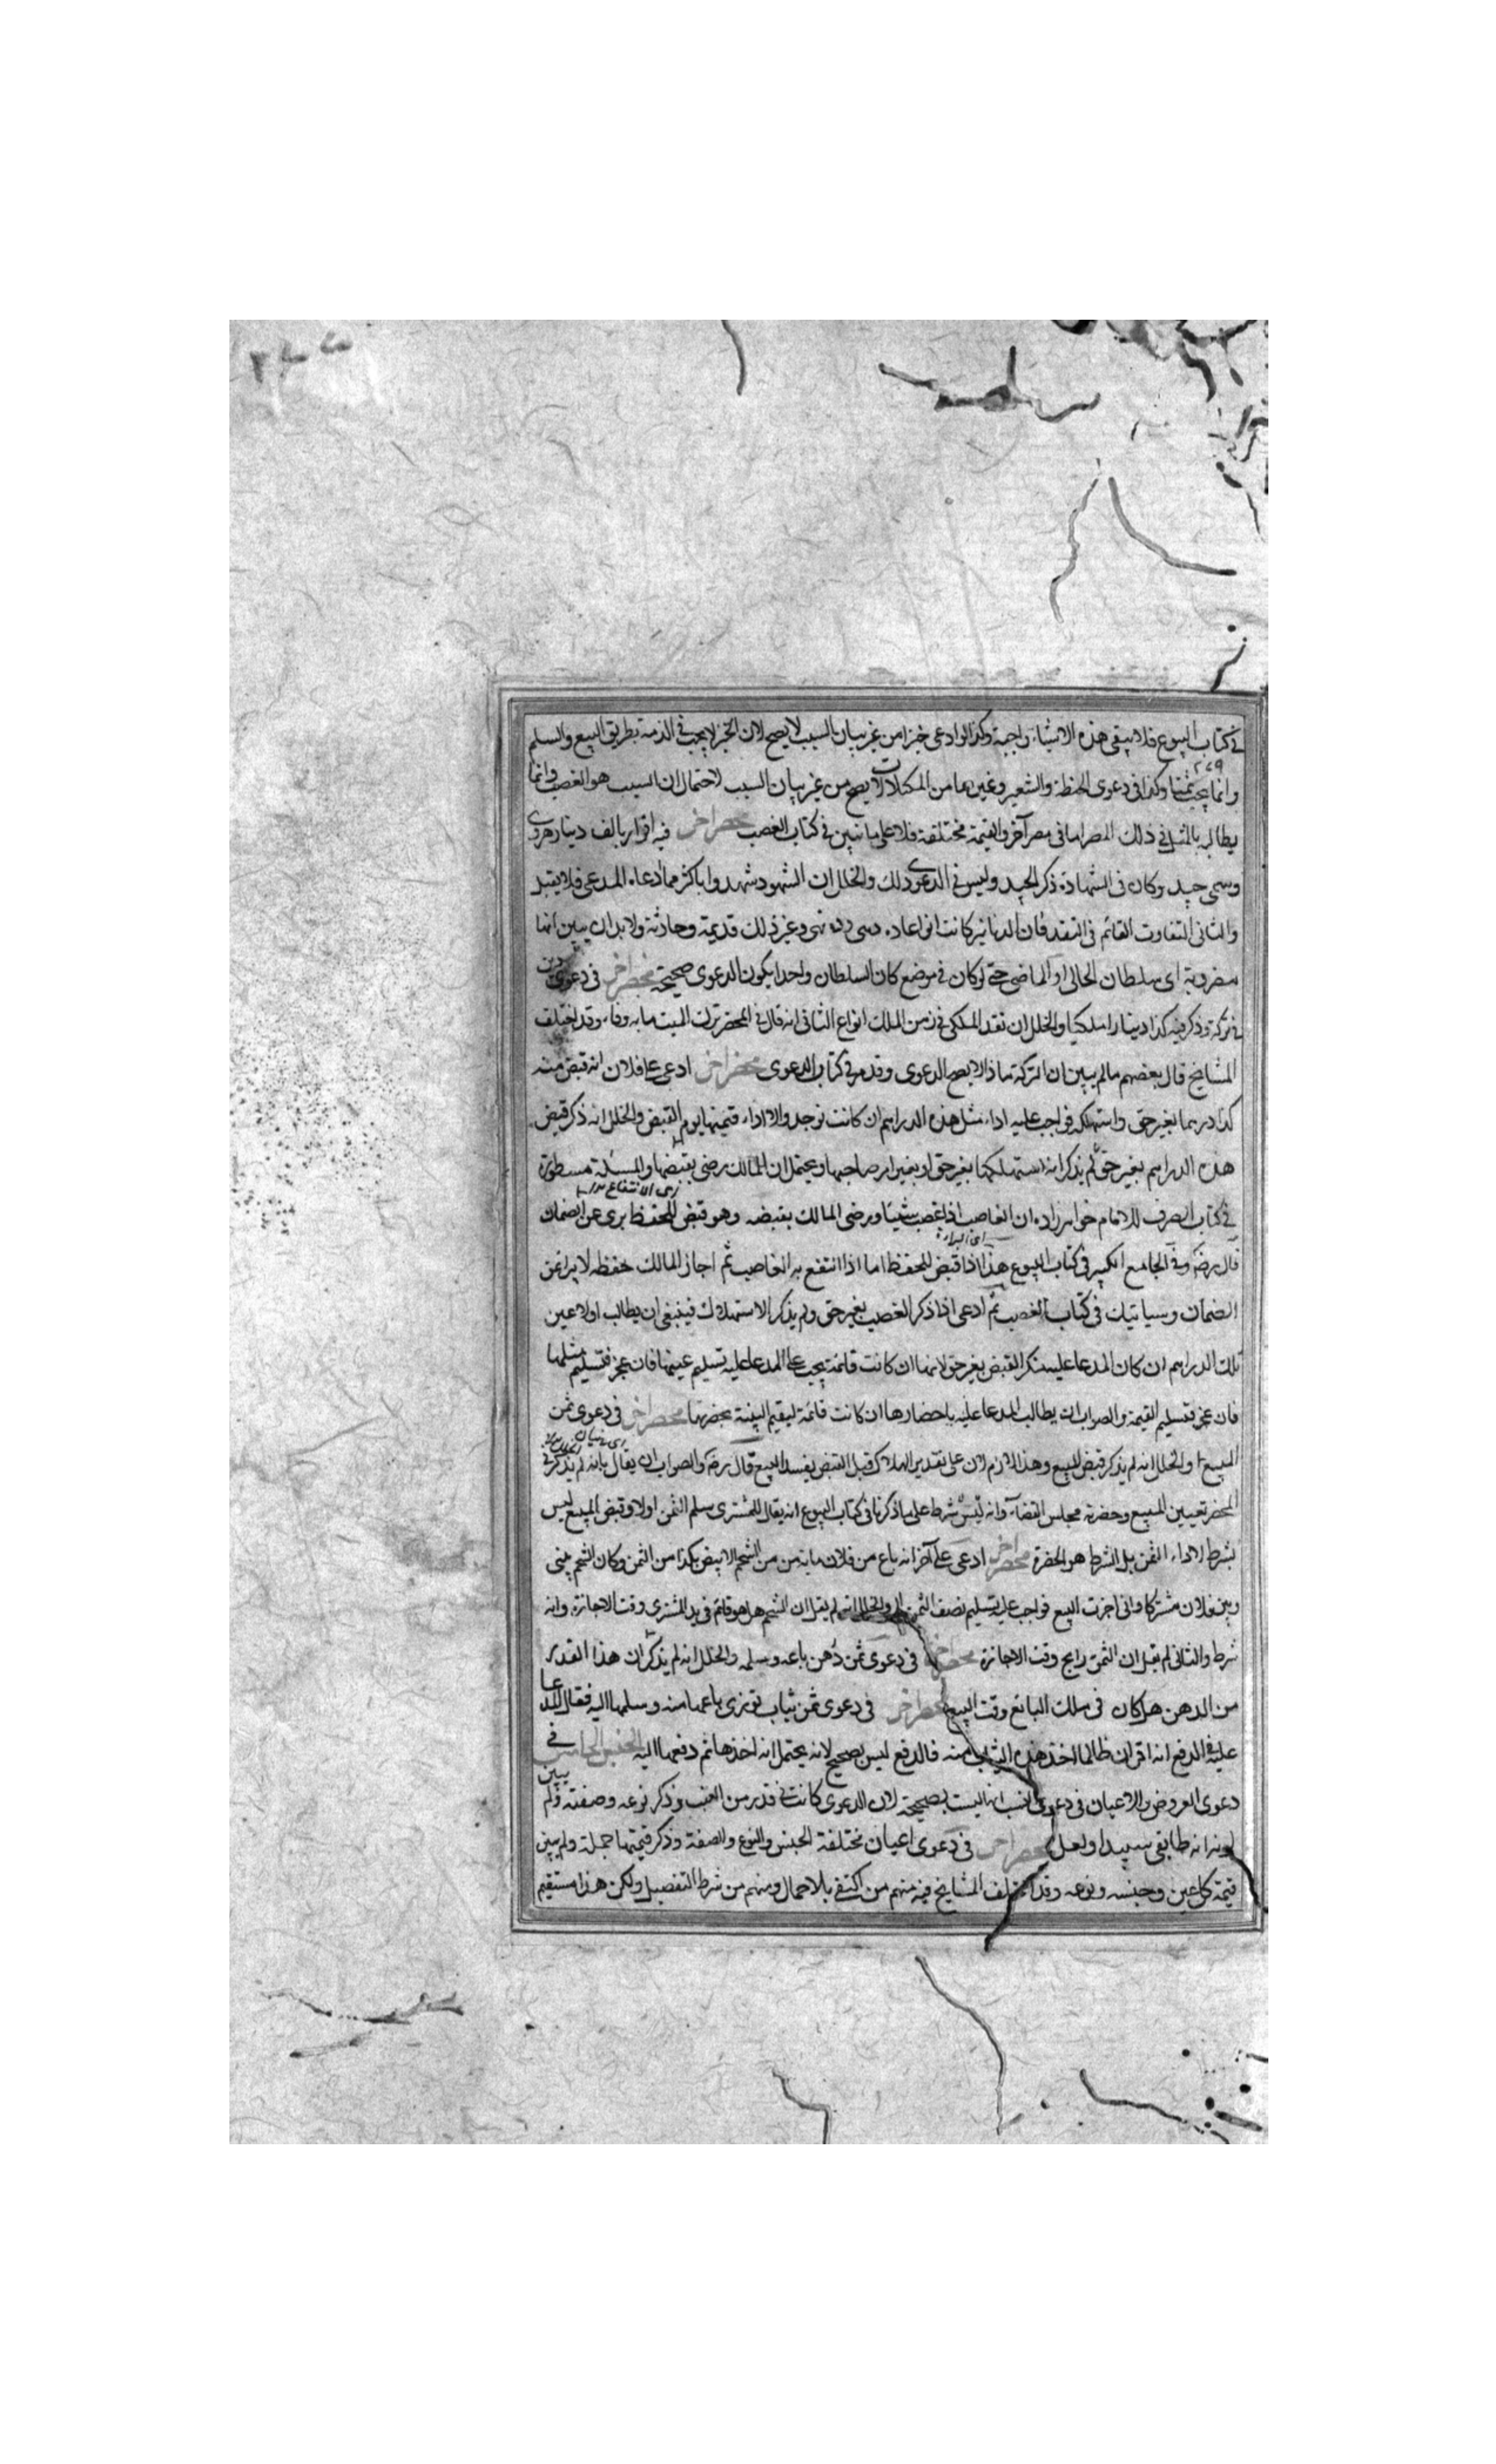 في كتاب البيوع فلا يبقى هذه الاشياء واجبة وكذا لو ادعى خبزا من غير بيان السبب لا يصح لان الخبز لا يجب في الذمة بطريق البيع والسلم
٢٧٩
وانما يجب ثمنا وكذا في دعوى الحنطة والشعير وغيرهما من المكيلات لا يصح من غير بيان السبب لاحتمال ان السبب هو الغصب وانما
يطالبه بالمثل في ذلك المصر اما في مصر آخر والقيمة مختلفة فلا على ما نبين في كتاب الغصب محضر اخر فيه اقرار بالف دينار هروى
وسمى جيد وكان في الشهادة ذكر الجيد وليس في الدعوى ذلك والخلل ان الشهود شهدوا باكثر مما ادعاه المدعى فلا يقبل
والثاني التفاوت القائم في النقد فان الدنانير كانت انواعا ده دهى ده نهى وغير ذلك قديمة وحادثة ولا بد ان يبين انها
مضروبة اى سلطان الحالى او الماضى حتى لو كان في موضع كان السلطان واحدا يكون الدعوى صحيحة محضر اخر في دعوى دين
في تركة وذكر فيه كذا دينارا ملكيا والخلل ان نقد الملكى في زمن الملك انواع الثانى انه قال في المحضر ترك الميت ما به وفاء وقد اختلف
المشايخ قال بعضهم ما لم يبين ان التركة ماذا لا يصح الدعوى وقد مر في كتاب الدعوى محضر اخر ادعى على فلان انه قبض منه
كذا درهما بغير حق واستهلكه فواجب عليه اداء مثل هذه الدراهم ان كانت توجد والا اداء قيمتها يوم القبض والخلل انه ذكر قبض
هذه الدراهم بغير حق لم يذكر انه استهلكها بغير حق او بغير امر صاحبها ويحتمل ان المالك رضى بقبضها والمسئلة مسطورة
في كتاب الصرف للامام خواهرزاده ان الغاصب اذا غصب شيئا ورضى المالك بقبضه وهو قبض للحفظ برى عن الضمان
قال رضه وفى الجامع الكبير في كتاب البيوع هذا اذا قبض للحفظ اما اذا انتفع به الغاصب ثم اجاز المالك حفظه لا يبرا عن
الضمان وسياتيك في كتاب الغصب ثم ادعى اذا ذكر الغصب بغير حق ولم يذكر الاستهلاك فينبغى ان يطالب اولا عين
تلك الدراهم ان كان المدعا عليه منكر القبض بغير حق لانها ان كانت قائمة يجب على المدعا عليه تسليم عينها فان عجز فتسليم مثلها
فان عجز فتسليم القيمة والصواب ان يطالب المدعا عليه باحضارها ان كانت قائمة ليقيم البينة بحضرتها محضر اخر في دعوى ثمن
المبيع والخلل انه لم يذكر قبض المبيع وهذا لازم لان على تقدير الهلاك قبل القبض يفسد البيع قال رضه والصواب ان يقال بانه لم يذكر في
المحضر تعيين المبيع وحضرته مجلس القضاء وانه ليس شرط على ما ذكرنا في كتاب البيوع انه يقال للمشترى سلم الثمن اولا وقبض المبيع ليس
بشرط لاداء الثمن بل الشرط هو الحضرة محضر اخر ادعى على آخر انه باع من فلان ماية من من الشحم الابيض بكذا من الثمن وكان الشحم بينى
وبين فلان مشتركا وانى اجزت البيع فواجب عليه تسليم نصف الثمن الى والخلل انه لم يقل ان الشحم هل هو قائم في يد المشترى وقت الاجازة وانه
شرط والثانى لم يقل ان الثمن رايج وقت الاجازة محضر اخر في دعوى ثمن دهن باعه وسلمه والخلل انه لم يذكر ان هذا القدر
من الدهن هل كان في ملك البائع وقت البيع محضر اخر في دعوى ثمن ثياب توزى باعها منه وسلمها اليه فقال المدعا
عليه في الدفع انه اقر ان ظالما اخذ هذه الثياب منه فالدفع ليس بصحيح لانه يحتمل انه اخذها ثم دفعها اليه الجنس الخامس في
دعوى العروض والاعيان في دعوى العنب انها ليست بصحيحة لان الدعوى كانت في قدر من العنب وذكر نوعه وصفته ولم يبين
لونه انه طابقى سپيد او لعل محضر اخر في دعوى اعيان مختلفة الجنس والنوع والصفة وذكر قيمتها جملة ولم يبين
قيمة كل عين وجنسه ونوعه وقد اختلف المشايخ فيه منهم من اكتفى بالاجمال ومنهم من شرط التفصيل ولكن هذا مستقيم